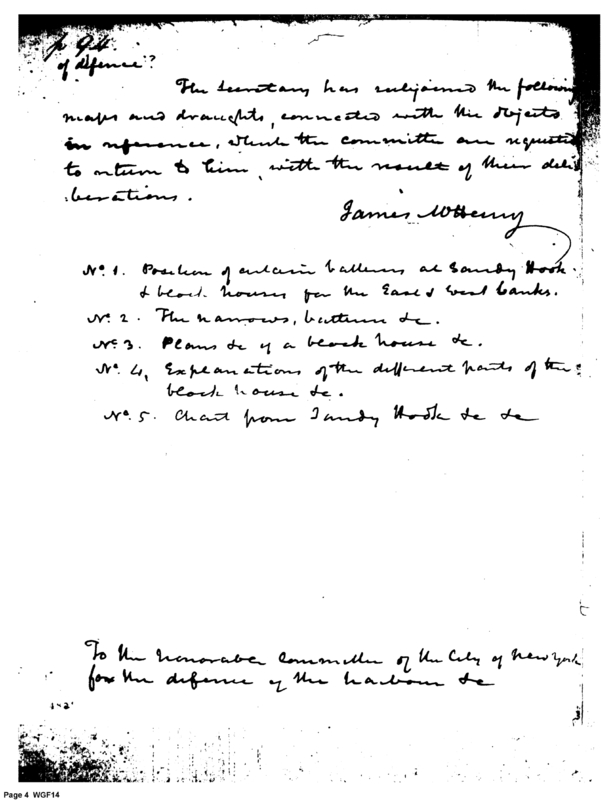 p 94.
of defence?
The Secretary has subjoined the following
maps and draughts, connected with the objects
in reference, which the committee are requested
to return to him, with the result of their deli
berations.
James McHenry
No. 1. Position of certain batteries at Sandy Hook.
& block houses for the East & West banks.
No. 2. The narrows, batteries &c.
No. 3. Plans &c of a block house &c.
No. 4, Explanations of the different parts of the
block house &c.
No. 5. Chart from Sandy Hook &c &c
To the honorable Committee of the City of New York
for the defence of the harbour &c
Page 4 WGF14